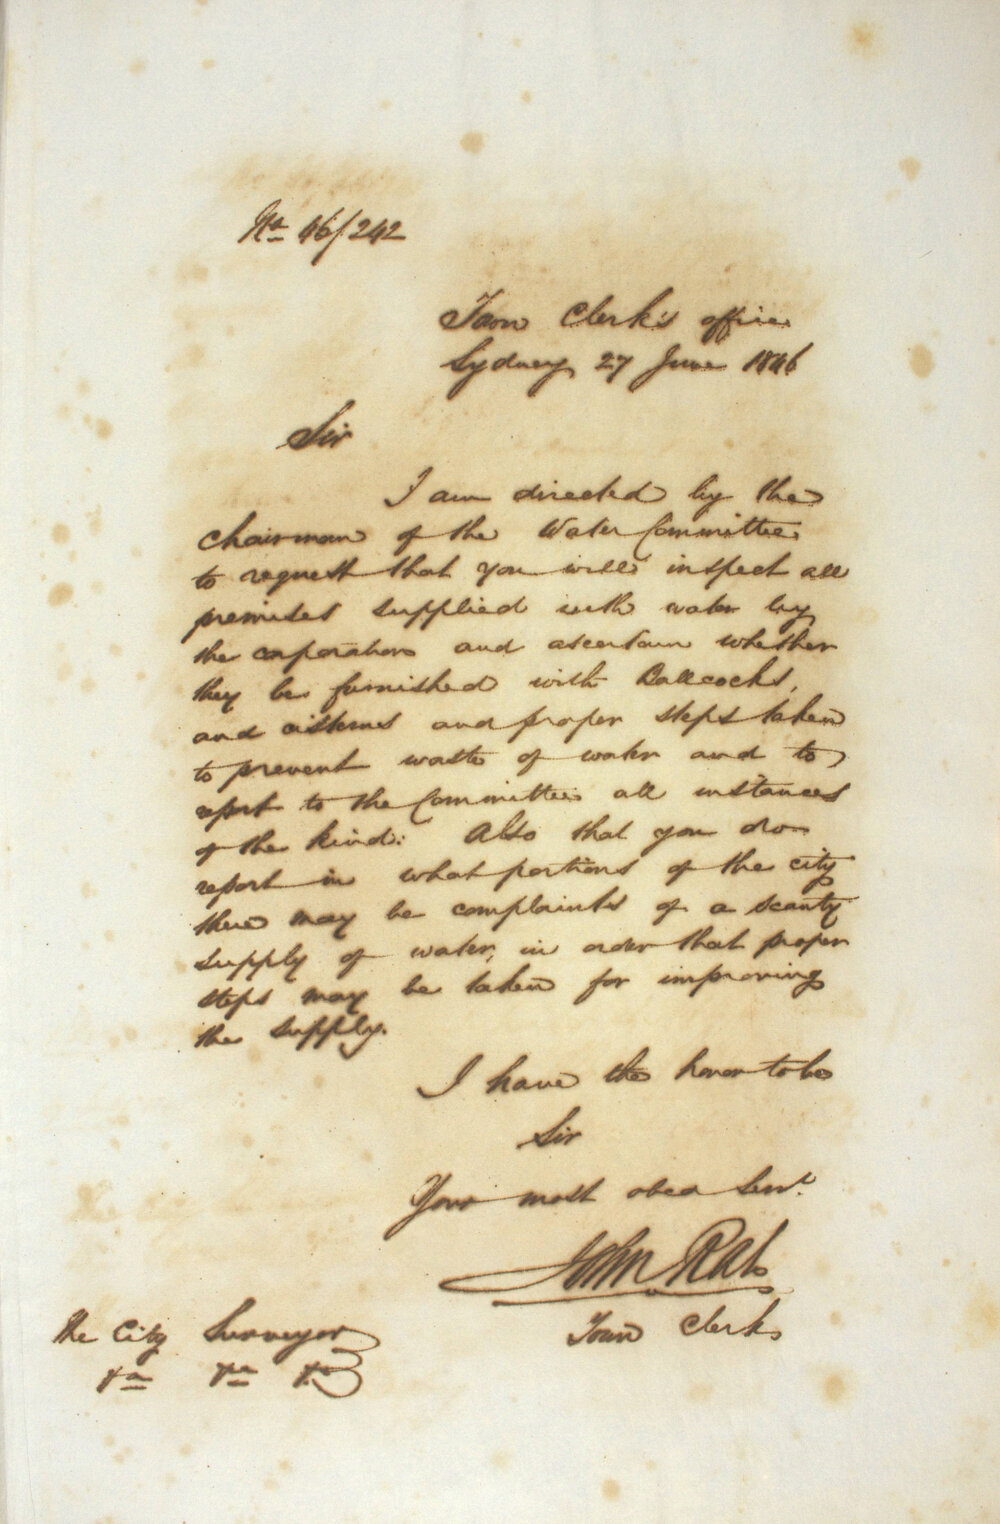 No 46/242
Town Clerk's office
Sydney 27 June 1846
Sir
I am directed by the
Chairman of the Water Committee
to request that you will inspect all
premises supplied with water by
the corporation and ascertain whether
they be furnished with Ballcocks,
and cisterns and proper steps taken
to prevent waste of water and to
report to the Committee all instances
of the kind: Also that you do
report in what portions of the city
there may be complaints of a scanty
supply of water, in order that proper
steps may be taken for improving
the supply.
I have the honor to be
Sir
Your most obed Servt.
John Rae
Town Clerk
The City Surveyor
&a &a &a